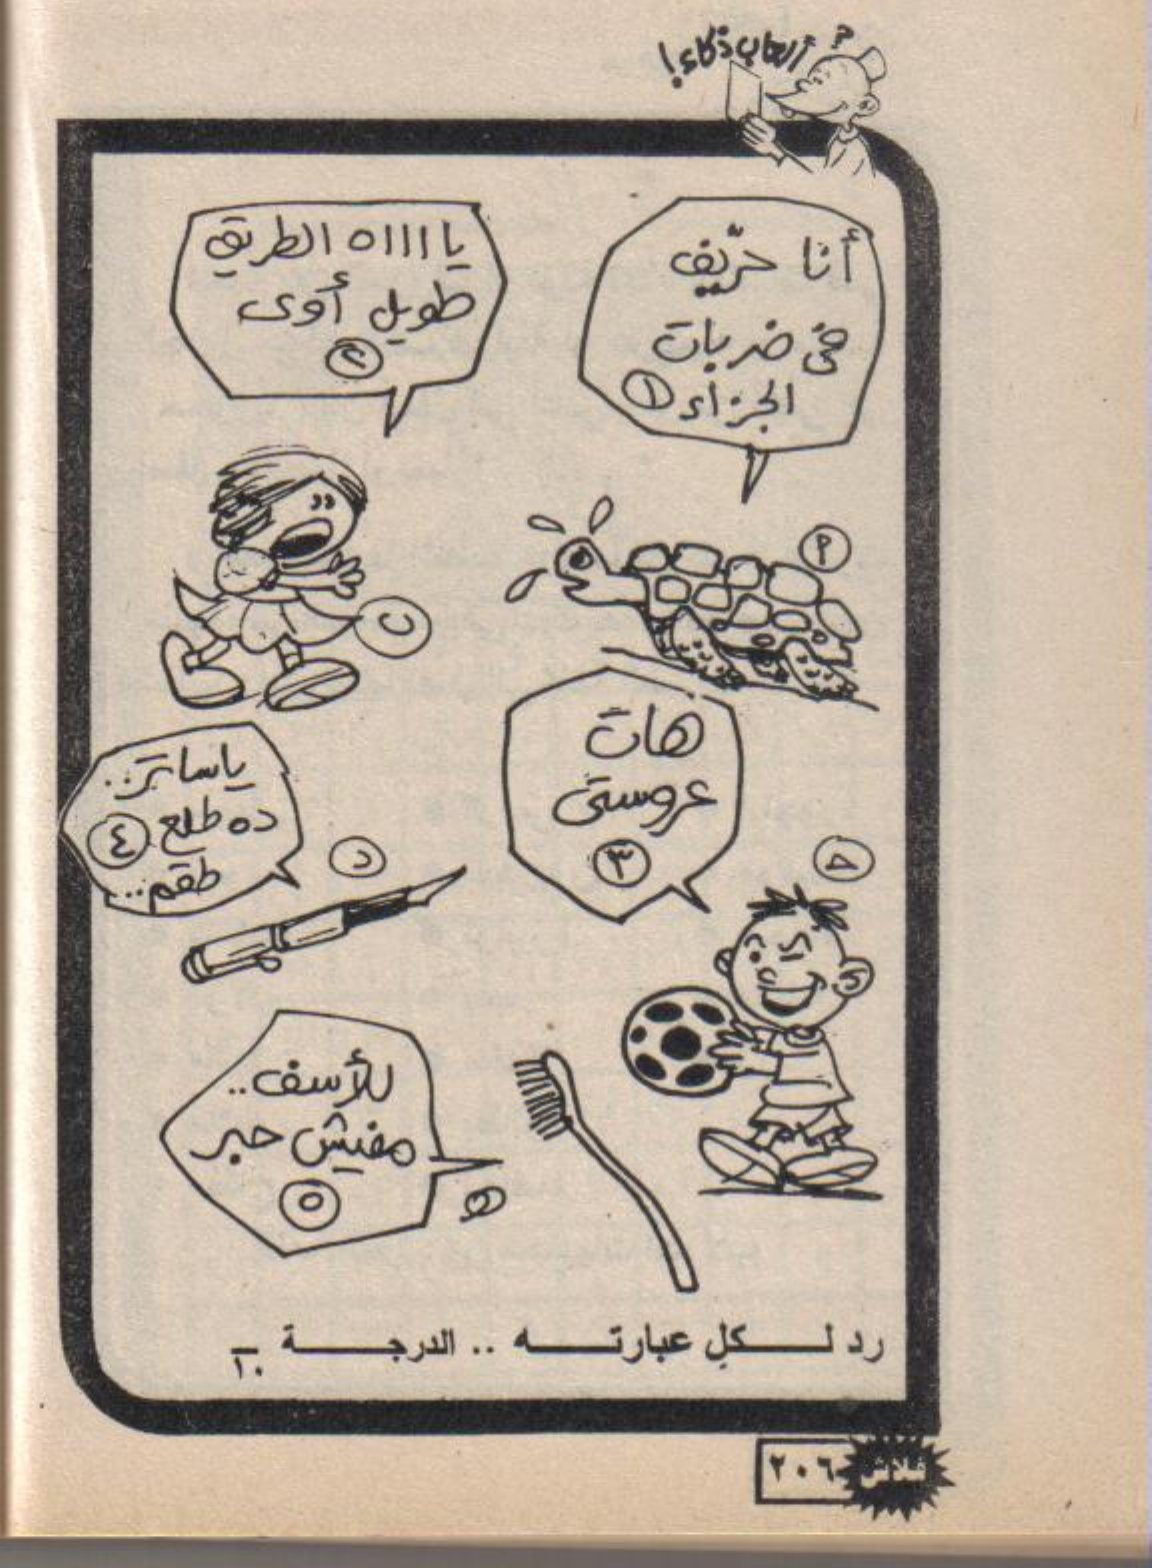 ألعاب ذكاء!
أنا حرّيف
فى ضربات
الجزاء ١
يا اااه الطريق
طويل أوى
٢
أ
ب
هات
عروستى
٣
ياساتر..
ده طلع ٤
طقم..
د
ج
للأسف..
مفيش حبر
٥
هـ
رد لكل عبارته .. الدرجة ـ/١٠
فلاش
٢٠٦